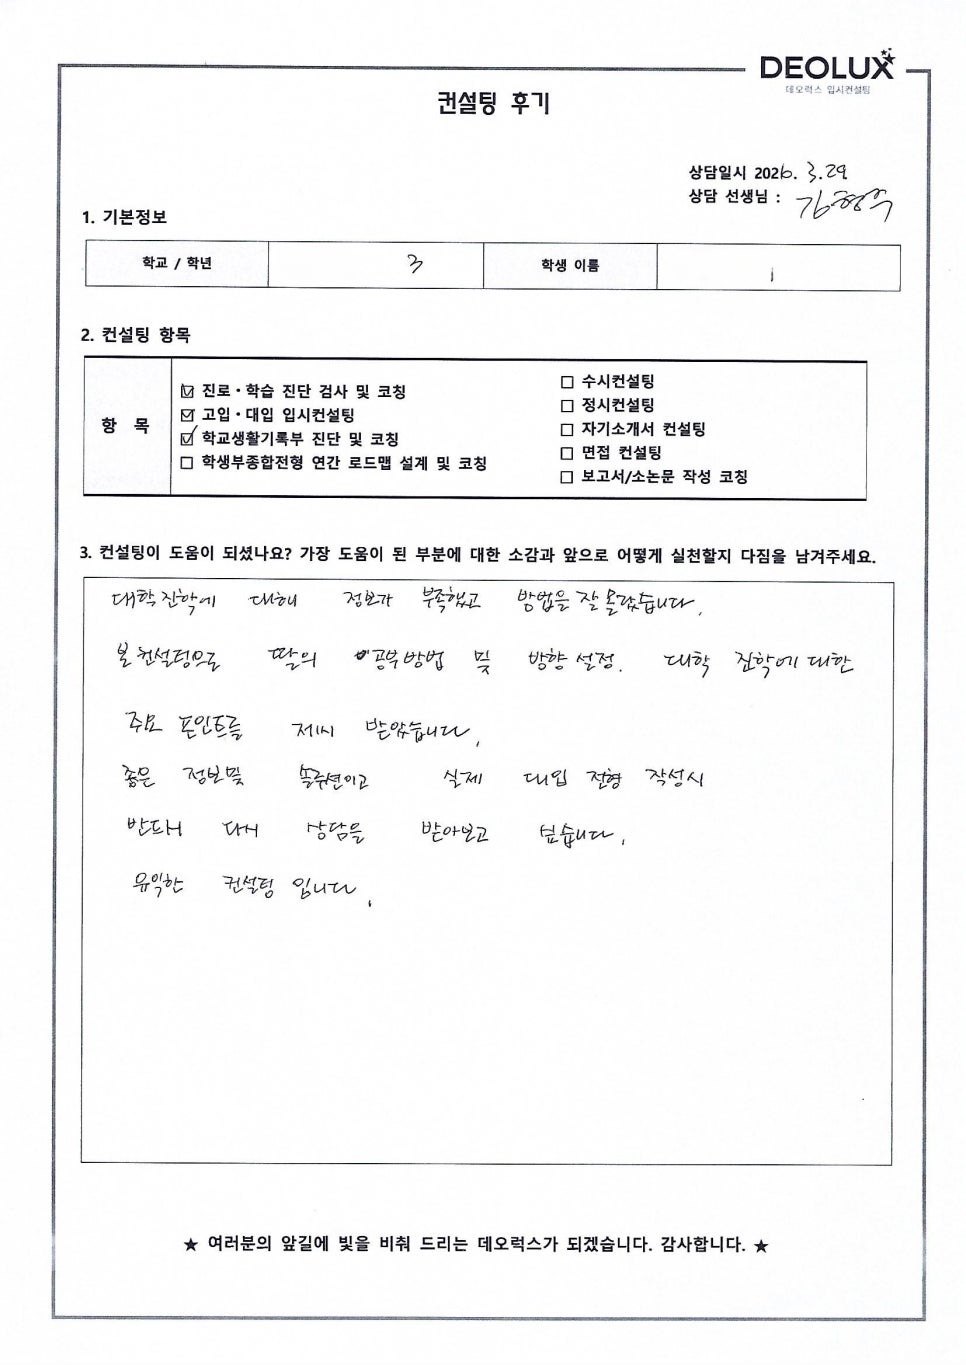 DEOLUX
데오럭스 입시컨설팅
컨설팅 후기
상담일시 2026. 3.29
상담 선생님 :
1. 기본정보
학교 / 학년 3 학생 이름
2. 컨설팅 항목
항 목
☑ 진로·학습 진단 검사 및 코칭
☑ 고입·대입 입시컨설팅
☑ 학교생활기록부 진단 및 코칭
☐ 학생부종합전형 연간 로드맵 설계 및 코칭
☐ 수시컨설팅
☐ 정시컨설팅
☐ 자기소개서 컨설팅
☐ 면접 컨설팅
☐ 보고서/소논문 작성 코칭
3. 컨설팅이 도움이 되셨나요? 가장 도움이 된 부분에 대한 소감과 앞으로 어떻게 실천할지 다짐을 남겨주세요.
대학진학에 대해 정보가 부족했고 방법을 잘 몰랐습니다.
본 컨설팅으로 딸의 공부방법 및 방향 설정. 대학 진학에 대한
주요 포인트를 제시 받았습니다.
좋은 정보및 솔류션이고 실제 대입 전형 작성시
반드시 다시 상담을 받아보고 싶습니다.
유익한 컨설팅 입니다.
★ 여러분의 앞길에 빛을 비춰 드리는 데오럭스가 되겠습니다. 감사합니다. ★